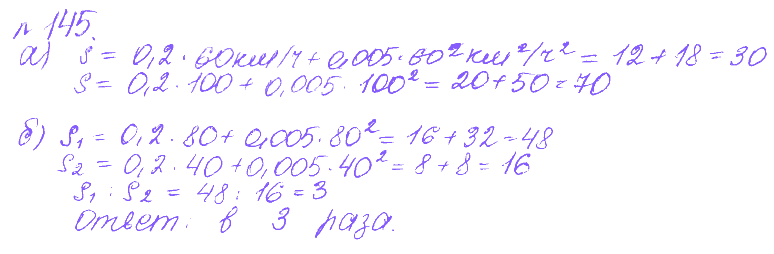 № 145.
а) S = 0,2 · 60 км/ч + 0,005 · 60² км²/ч² = 12 + 18 = 30
S = 0,2 · 100 + 0,005 · 100² = 20 + 50 = 70
б) S₁ = 0,2 · 80 + 0,005 · 80² = 16 + 32 = 48
S₂ = 0,2 · 40 + 0,005 · 40² = 8 + 8 = 16
S₁ : S₂ = 48 : 16 = 3
Ответ: в 3 раза.